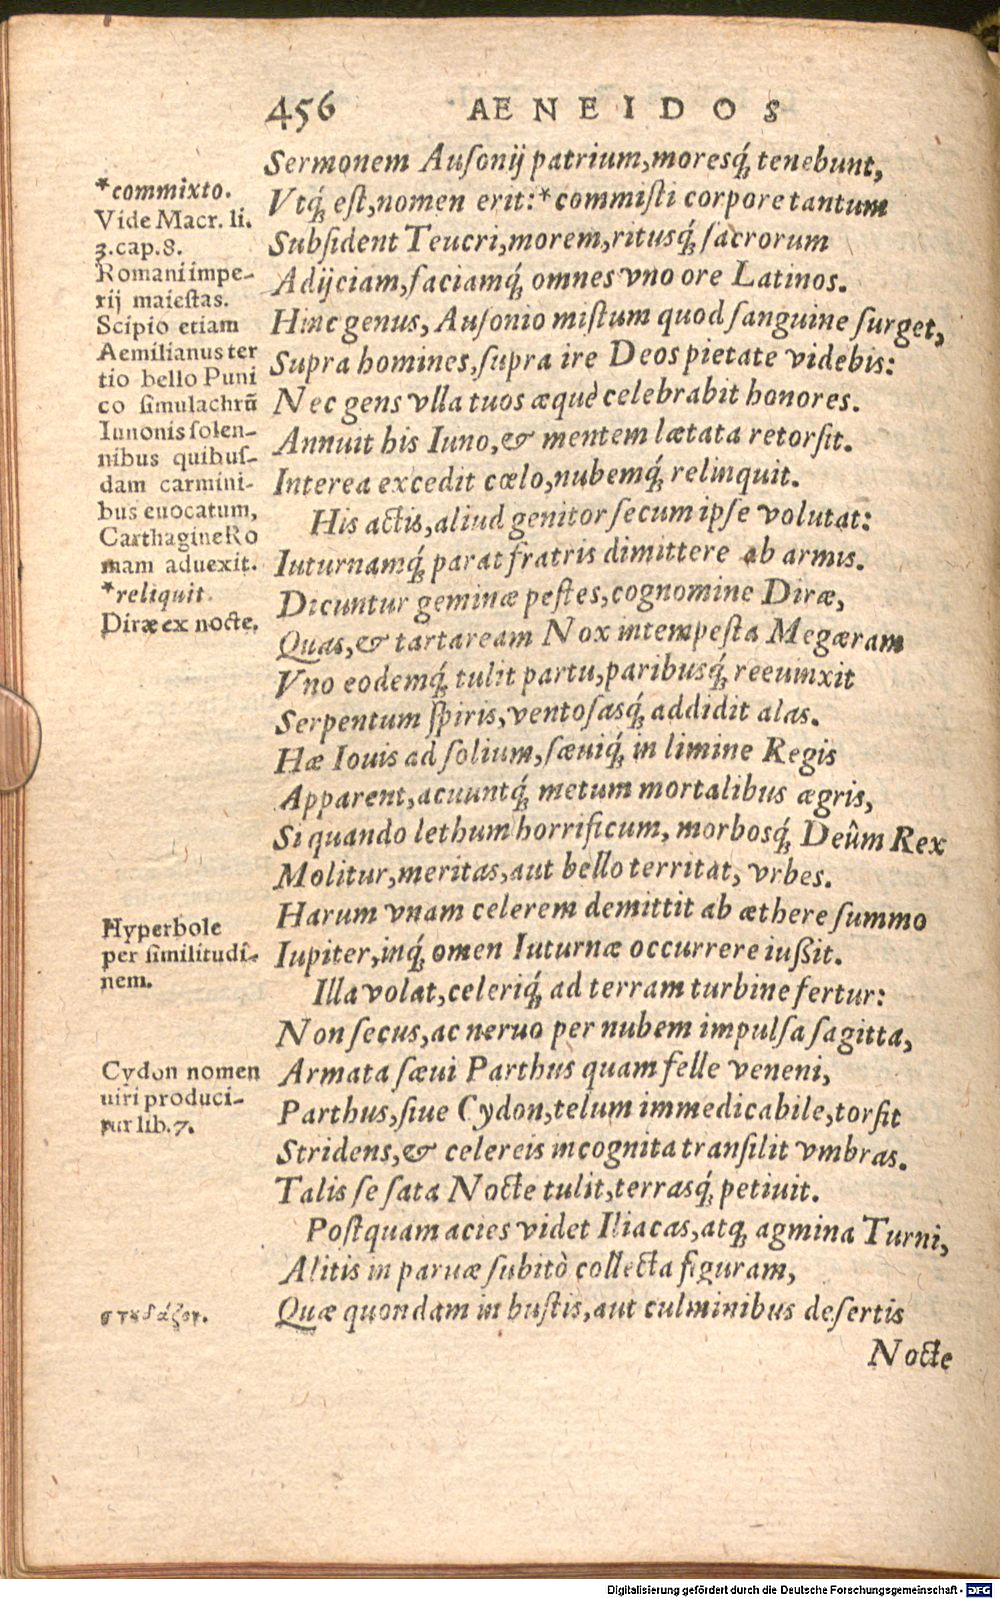 456 AENEIDOS
Sermonem Auſonij patrium, moresq́; tenebunt,
Vtq́; eſt, nomen erit: *commiſti corpore tantum
Subſident Teucri, morem, ritusq́; ſacrorum
Adijciam, faciamq́; omnes vno ore Latinos.
Hinc genus, Auſonio miſtum quod ſanguine ſurget,
Supra homines, ſupra ire Deos pietate videbis:
Nec gens vlla tuos æquè celebrabit honores.
Annuit his Iuno, & mentem lætata retorſit.
Interea excedit cœlo, nubemq́; relinquit.
His actis, aliud genitor ſecum ipſe volutat:
Iuturnamq́; parat fratris dimittere ab armis.
Dicuntur geminæ peſtes, cognomine Diræ,
Quas, & tartaream Nox intempeſta Megæram
Vno eodemq́; tulit partu, paribusq́; reeuinxit
Serpentum ſpiris, ventoſasq́; addidit alas.
Hæ Iouis ad ſolium, ſæuiq́; in limine Regis
Apparent, acuuntq́; metum mortalibus ægris,
Si quando lethum horrificum, morbosq́; Deûm Rex
Molitur, meritas, aut bello territat, vrbes.
Harum vnam celerem demittit ab æthere ſummo
Iupiter, inq́; omen Iuturnæ occurrere iußit.
Illa volat, celeriq́; ad terram turbine fertur:
Non ſecus, ac neruo per nubem impulſa ſagitta,
Armata ſæui Parthus quam felle veneni,
Parthus, ſiue Cydon, telum immedicabile, torſit
Stridens, & celereis incognita tranſilit vmbras.
Talis ſe ſata Nocte tulit, terrasq́; petiuit.
Poſtquam acies videt Iliacas, atq; agmina Turni,
Alitis in paruæ ſubitò collecta figuram,
Quæ quondam in buſtis, aut culminibus deſertis
Nocte
*commixto.
Vide Macr. li.
3. cap. 8.
Romani impe-
rij maieſtas.
Scipio etiam
Aemilianus ter
tio bello Puni
co ſimulachrū
Iunonis ſolen-
nibus quibuſ-
dam carmini-
bus euocatum,
Carthagine Ro
mam aduexit.
*reliquit.
Diræ ex nocte.
Hyperbole
per ſimilitudi-
nem.
Cydon nomen
uiri produci-
tur lib. 7.
Digitalisierung gefördert durch die Deutsche Forschungsgemeinschaft - DFG